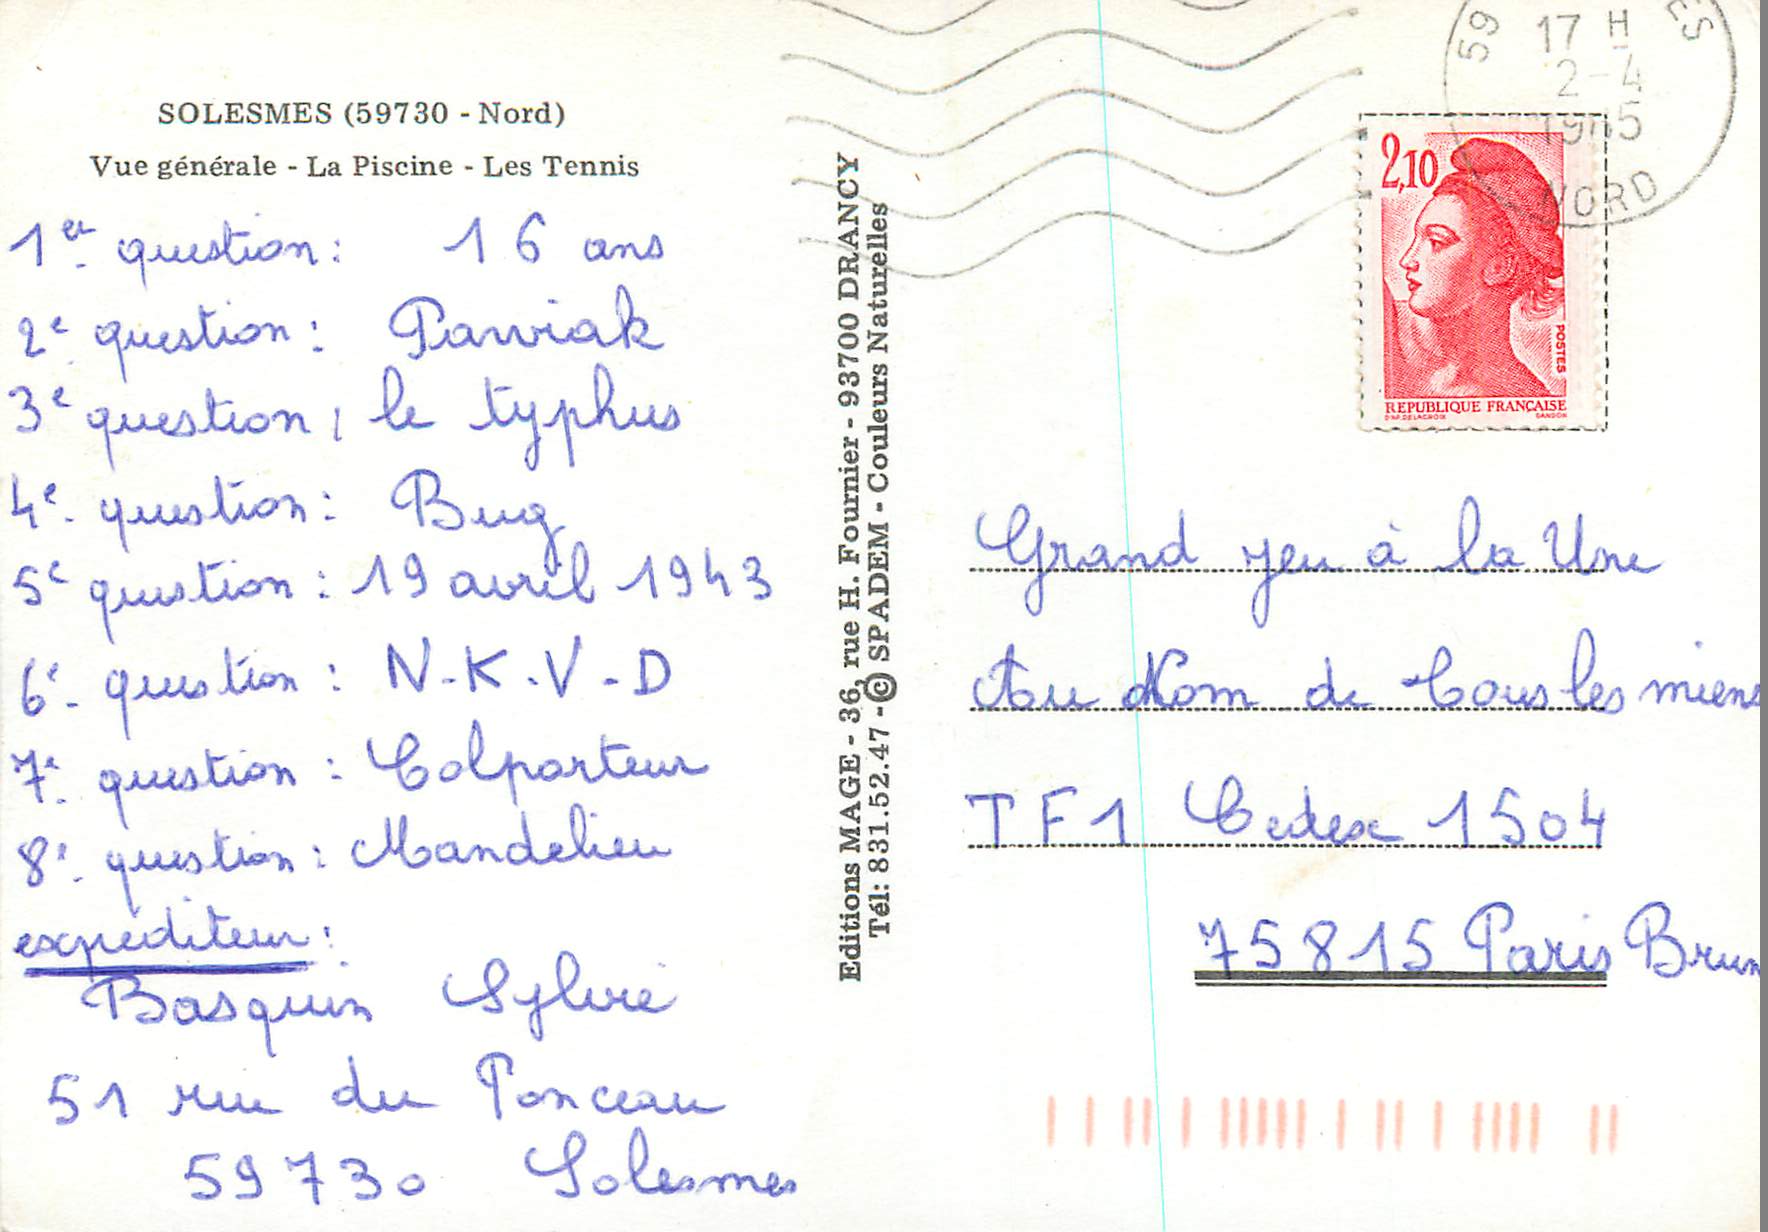 SOLESMES (59730 - Nord)
Vue générale - La Piscine - Les Tennis
1er question: 16 ans
2e question: Pawiak
3e question: le typhus
4e question: Bug
5e question: 19 avril 1943
6e question: N-K.V-D
7e question: Colporteur
8e question: Mandelieu
expediteur:
Basquin Sylvie
51 rue du Ponceau
59730 Solesmes
Editions MAGE - 36, rue H. Fournier - 93700 DRANCY
Tél: 831.52.47 - © SPADEM - Couleurs Naturelles
59 ES
17 H
2-4
1985
NORD
2,10
POSTES
REPUBLIQUE FRANÇAISE
D'AP. DELACROIX GANDON
Grand jeu à la Une
Au Nom de Tous les miens
TF1 Cedex 1504
75815 Paris Brun